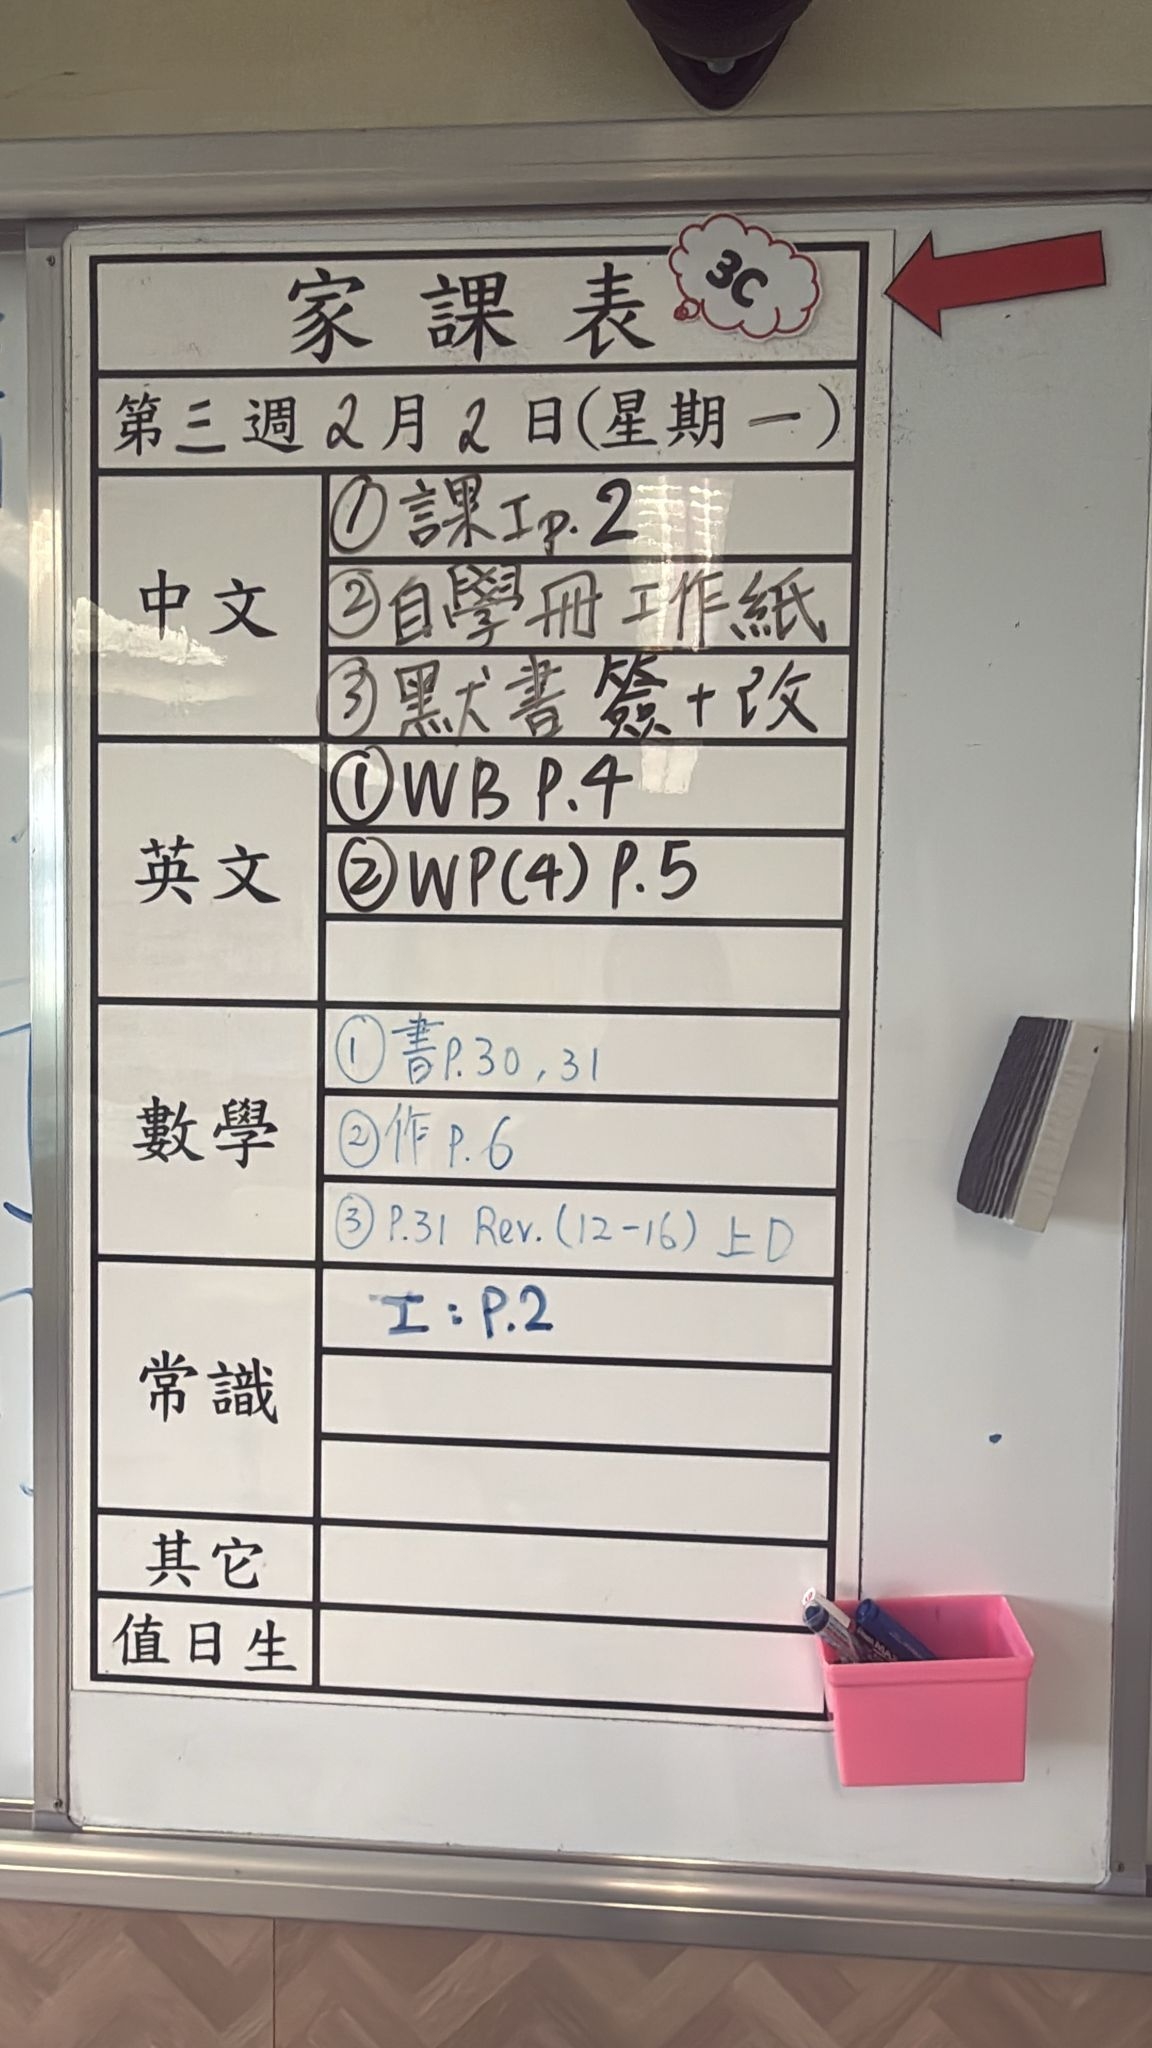 家課表 3C
第三週2月2日(星期一)
中文
①課工p.2
②自學冊工作紙
③默書 簽+改
英文
①WB P.4
②WP(4) P.5
數學
①書P.30,31
②作P.6
③P.31 Rev.(12-16) 上D
常識
工:P.2
其它
值日生